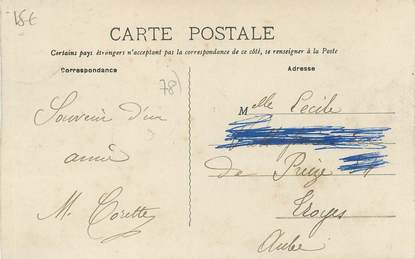 15€
CARTE POSTALE
Certains pays étrangers n'acceptant pas la correspondance de ce côté, se renseigner à la Poste
Correspondance
Adresse
78)
Souvenir d'un
ami
M.
Melle Cécile
de Preize
Troyes
Aube